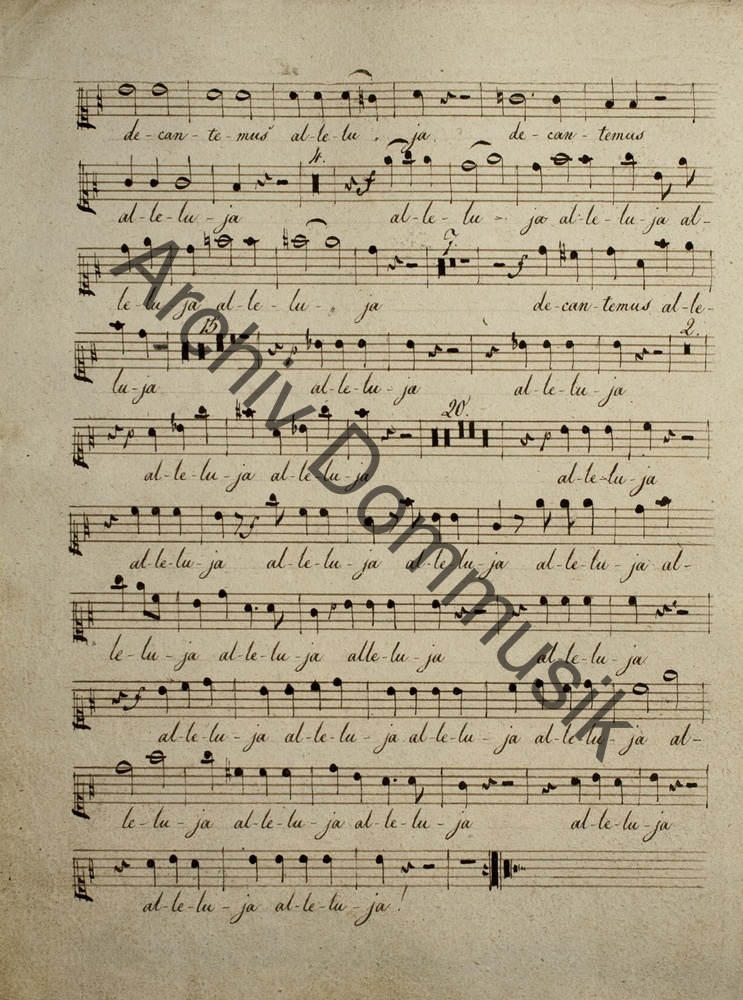 de-can-te-mus al-le-lu-ja de-can-temus
4.
al-le-lu-ja al-le-lu-ja al-le-lu-ja al-
7.
le-lu-ja al-le-lu-ja de-can-temus al-le-
15 2.
lu-ja al-le-lu-ja al-le-lu-ja
20.
al-le-lu-ja al-le-lu-ja al-le-lu-ja
al-le-lu-ja al-le-lu-ja al-le-lu-ja al-le-lu-ja al-
le-lu-ja al-le-lu-ja alle-lu-ja al-le-lu-ja
al-le-lu-ja al-le-lu-ja al-le-lu-ja al-le-lu-ja al-
le-lu-ja al-le-lu-ja al-le-lu-ja al-le-lu-ja
al-le-lu-ja al-le-lu-ja!
Archiv Dommusik